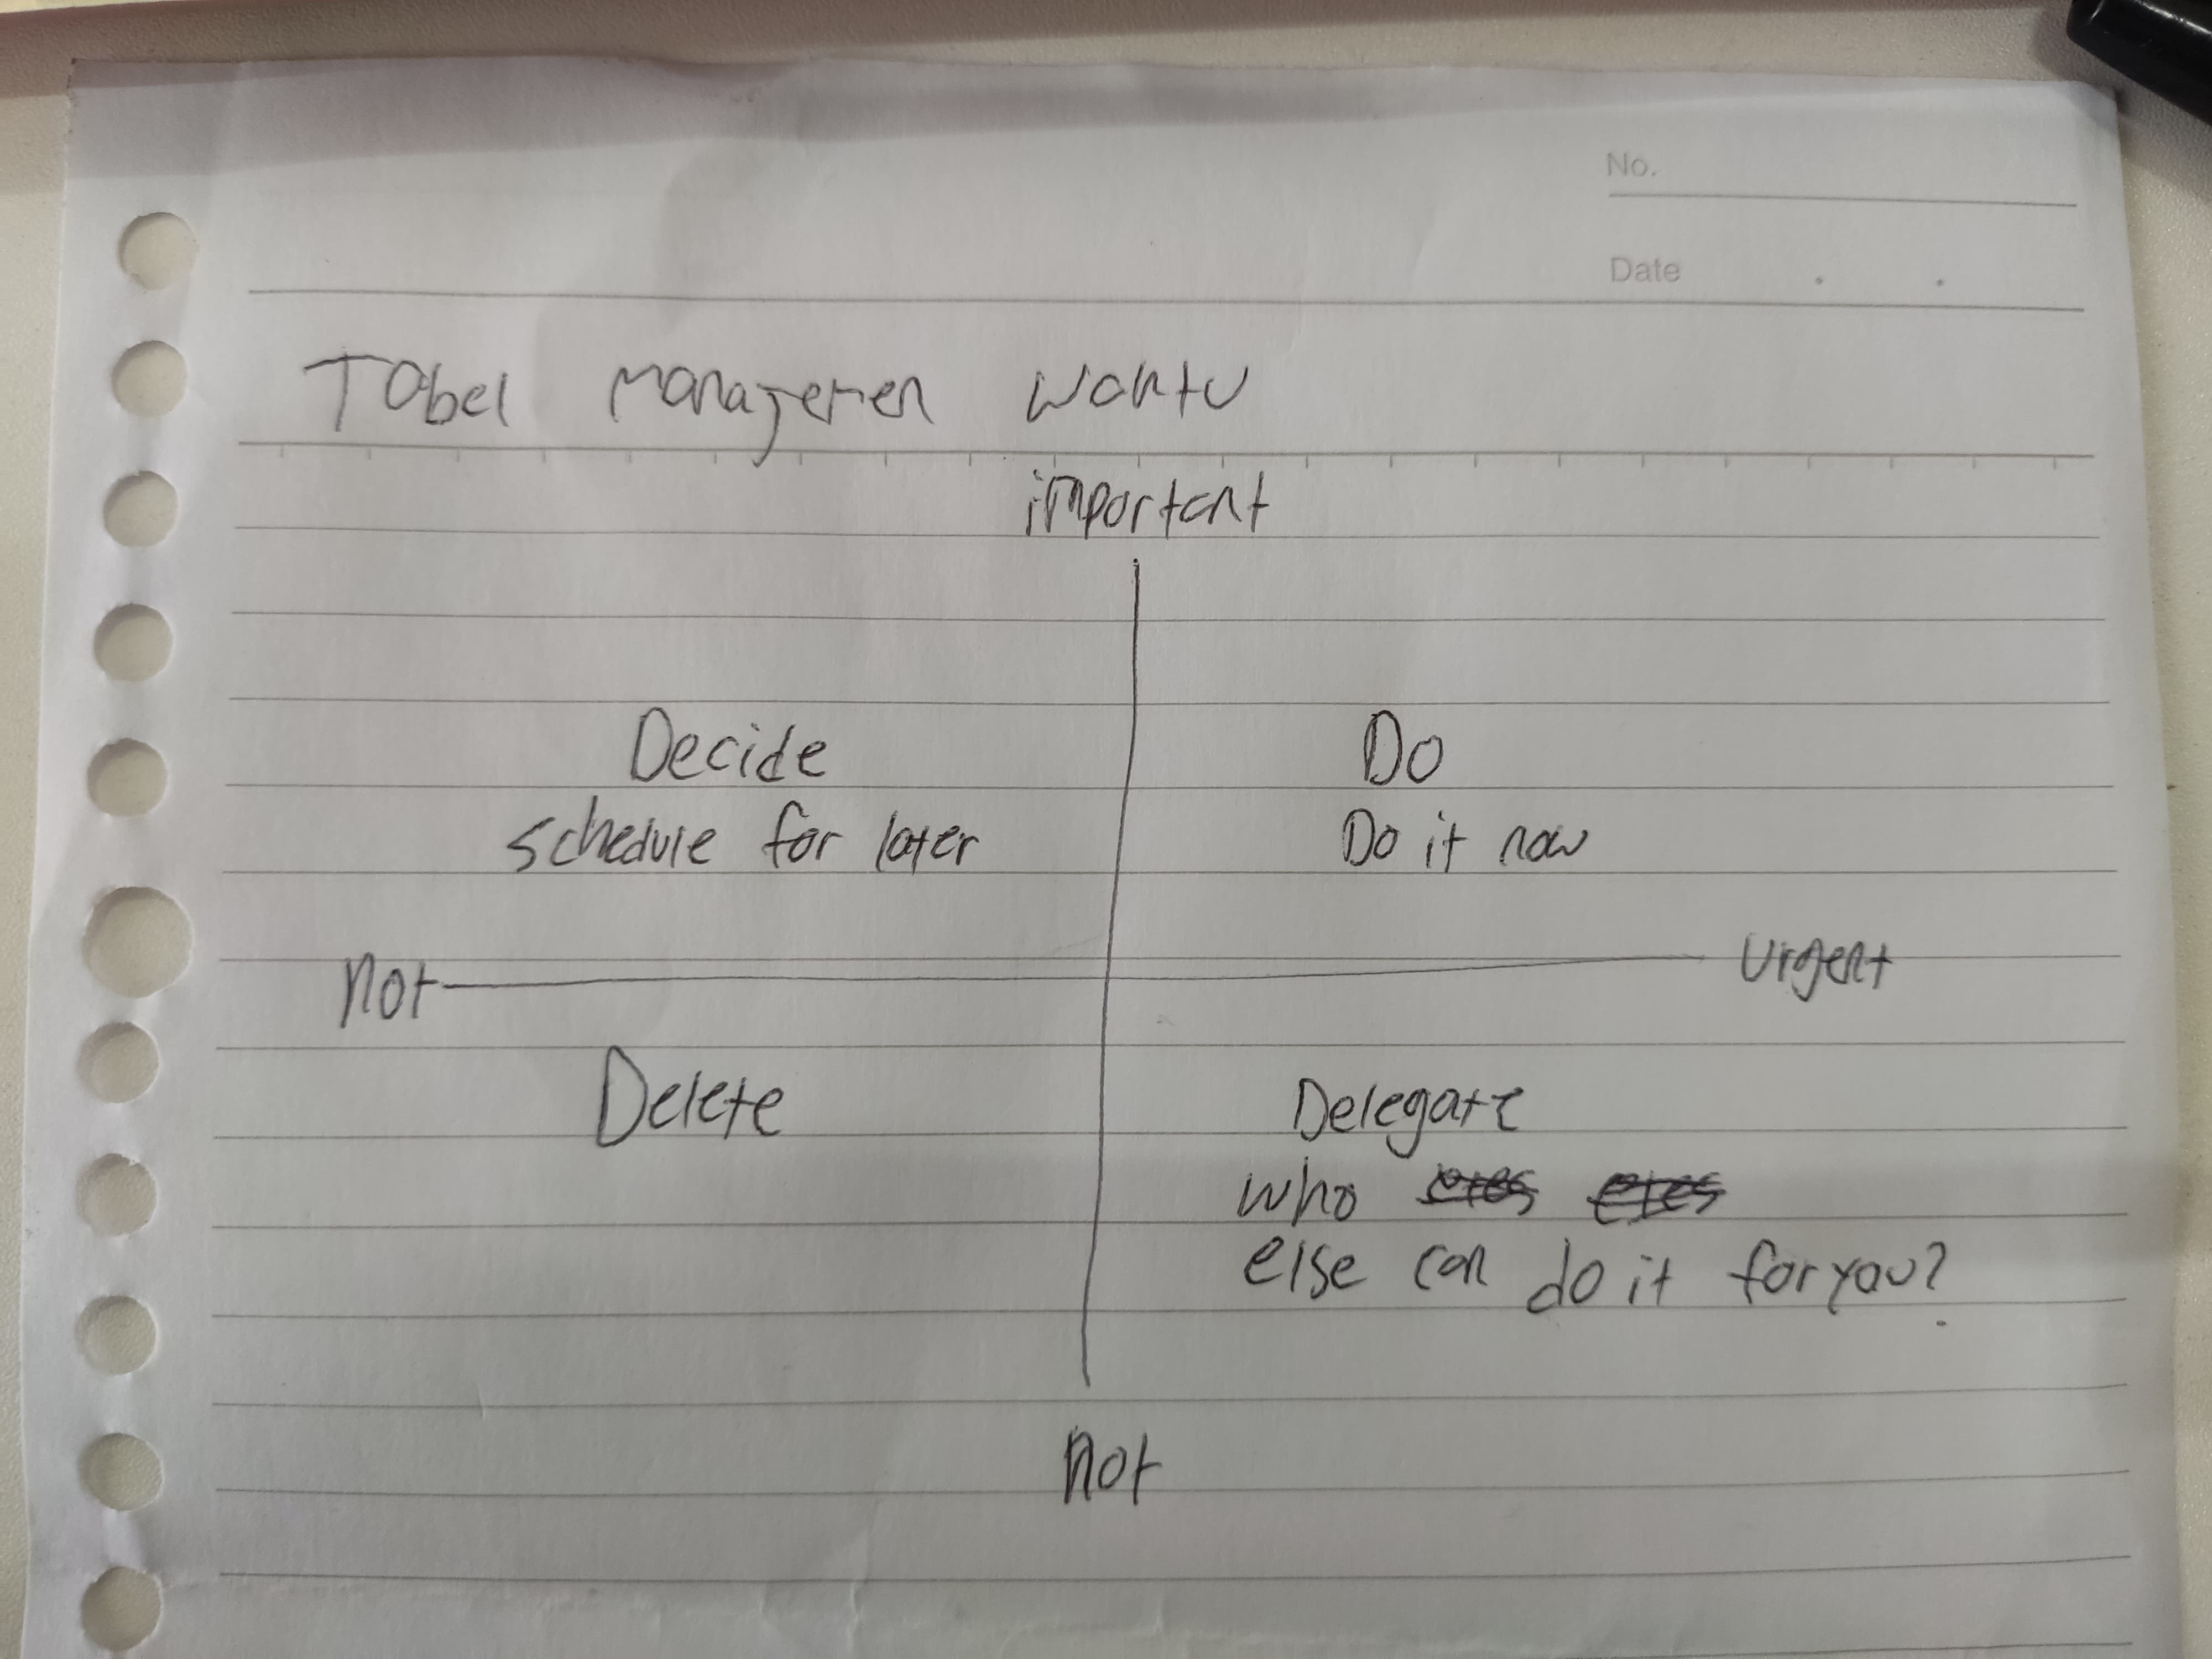 No.
Date
Tabel managemen waktu
important
Decide
Do
schedule for later
Do it now
not
Urgent
Delete
Delegate
who
else can do it for you?
not